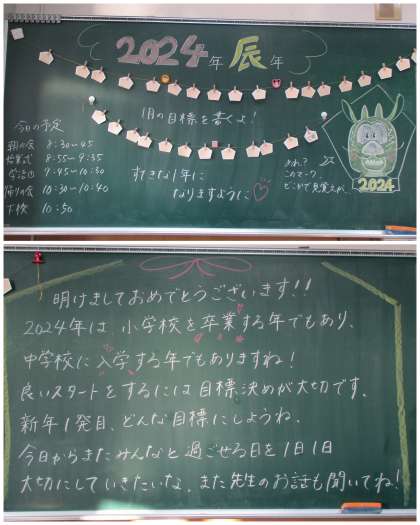 2024年 辰年
1月の目標を書くよ!
今日の予定
朝の会 8:30~45
始業式 8:55~9:35
学活① 9:45~10:30
帰りの会 10:30~10:40
下校 10:50
すてきな1年に
なりますように♡
あれ?
このマーク、
どこかで見覚えが…
2024
明けましておめでとうございます!!
2024年は、小学校を卒業する年でもあり、
中学校に入学する年でもありますね!
良いスタートをするには目標決めが大切です。
新年1発目、どんな目標にしようね。
今日からまたみんなと過ごせる日を1日1日
大切にしていきたいな。また先生のお話も聞いてね!